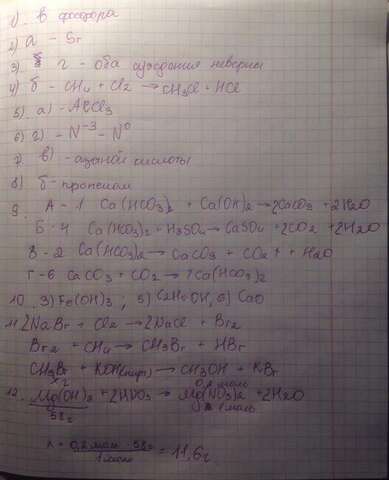 1) в фосфора
2) а - Sr
3) г - оба суждения неверны
4) б - CH4 + Cl2 → CH3Cl + HCl
5) а) - AlCl3
6) г) - N⁻³ - N⁰
7 в) - азотной кислоты
8) б - пропеном
9. А - 1 Ca(HCO3)2 + Ca(OH)2 → 2CaCO3 + 2H2O
Б - 4 Ca(HCO3)2 + H2SO4 → CaSO4 + 2CO2 + 2H2O
В - 2 Ca(HCO3)2 → CaCO3 + CO2↑ + H2O
Г - 6 CaCO3 + CO2 → Ca(HCO3)2
10. 3) Fe(OH)3 ; 5) C2H5OH, 6) CaO
11 2NaBr + Cl2 → 2NaCl + Br2
Br2 + CH4 → CH3Br + HBr
CH3Br + KOH → CH3OH + KBr
x г 0,2 моль
12. Mg(OH)2 + 2HNO3 → Mg(NO3)2 + 2H2O
58г 1 моль
x = 0,2 моль · 58г / 1 моль = 11,6г